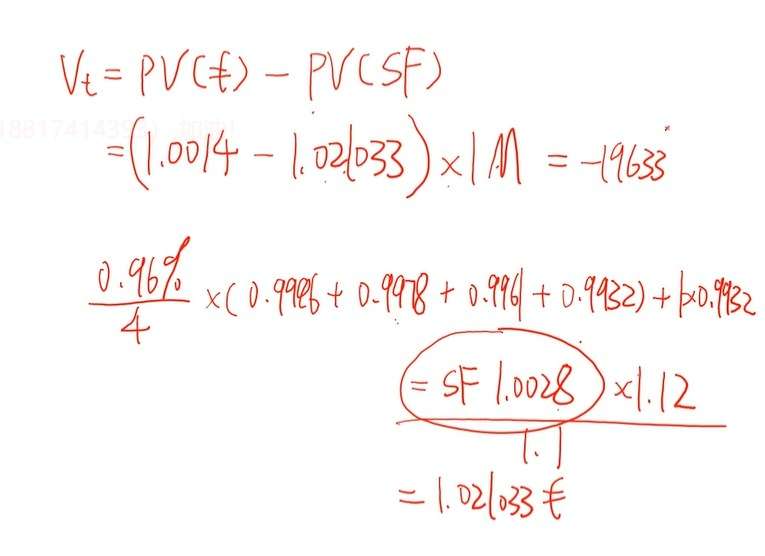 Vₜ = PV(€) − PV(SF)
= (1.0014 − 1.021033) × 1M = −19633
0.96%/4 × (0.9996 + 0.9978 + 0.996 + 0.9932) + 1×0.9932
= SF 1.0028 × 1.12
1.1
= 1.021033 €